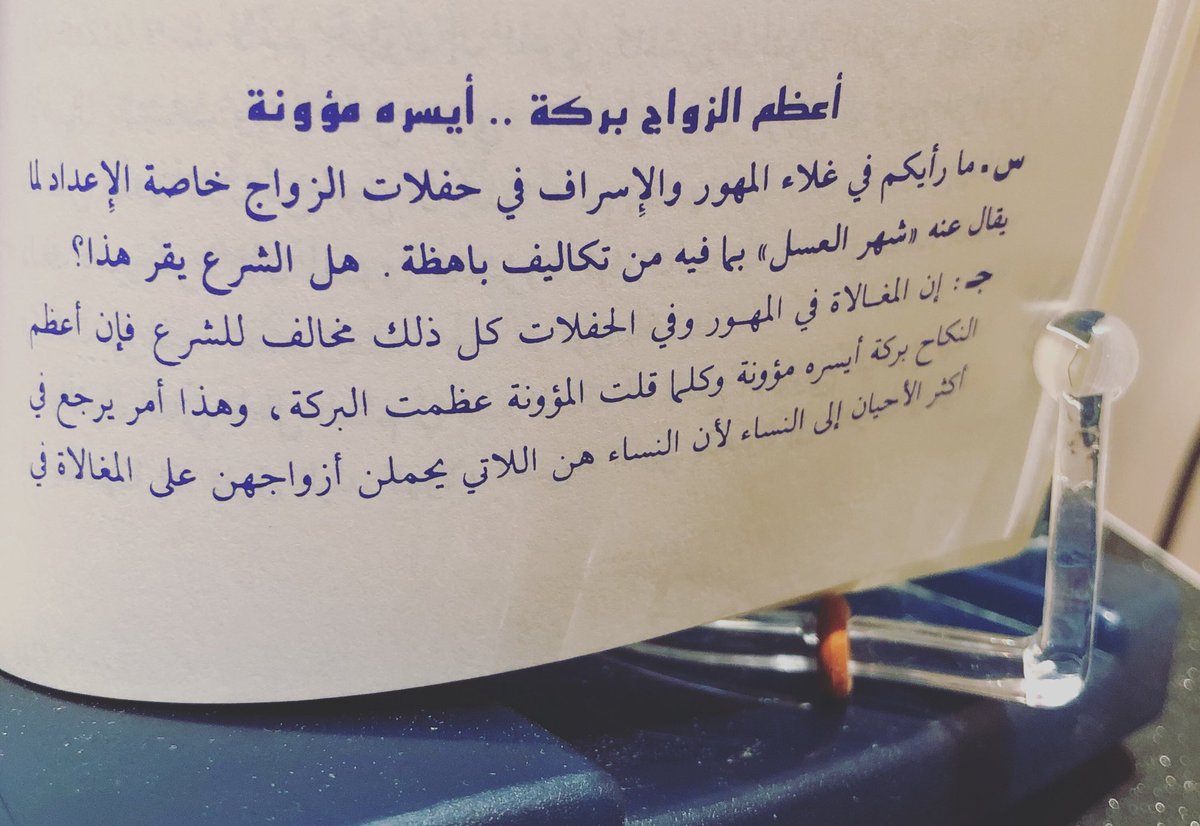 أعظم الزواج بركة .. أيسره مؤونة
س . ما رأيكم في غلاء المهور والإسراف في حفلات الزواج خاصة الإعداد لما
يقال عنه «شهر العسل» بما فيه من تكاليف باهظة . هل الشرع يقر هذا؟
جـ : إن المغـالاة في المهـور وفي الحفلات كل ذلك مخالف للشرع فإن أعظم
النكاح بركة أيسره مؤونة وكلما قلت المؤونة عظمت البركة، وهذا أمر يرجع في
أكثر الأحيان إلى النساء لأن النساء هن اللاتي يحملن أزواجهن على المغالاة في